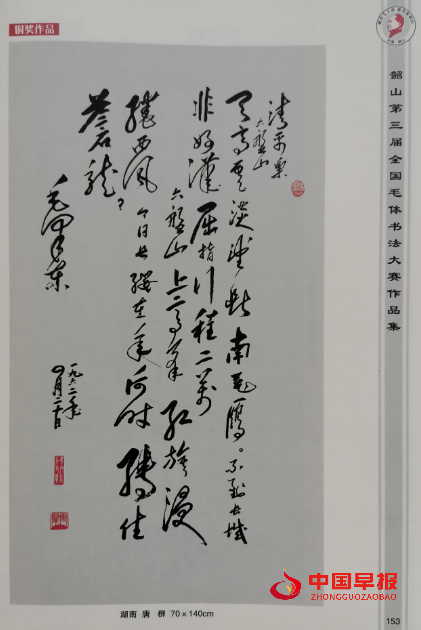 铜奖作品
清平樂
六盤山
天高雲淡望斷南飞雁。不到长城
非好漢屈指行程二萬
六盤山上高峰红旗漫
捲西风今日长缨在手何时缚住
苍龙?
毛泽东
一九六二年
四月二十日
湖南 唐 群 70×140cm
韶山第三届全国毛体书法大赛作品集
中国早报
ZHONGGUOZAOBAO
153